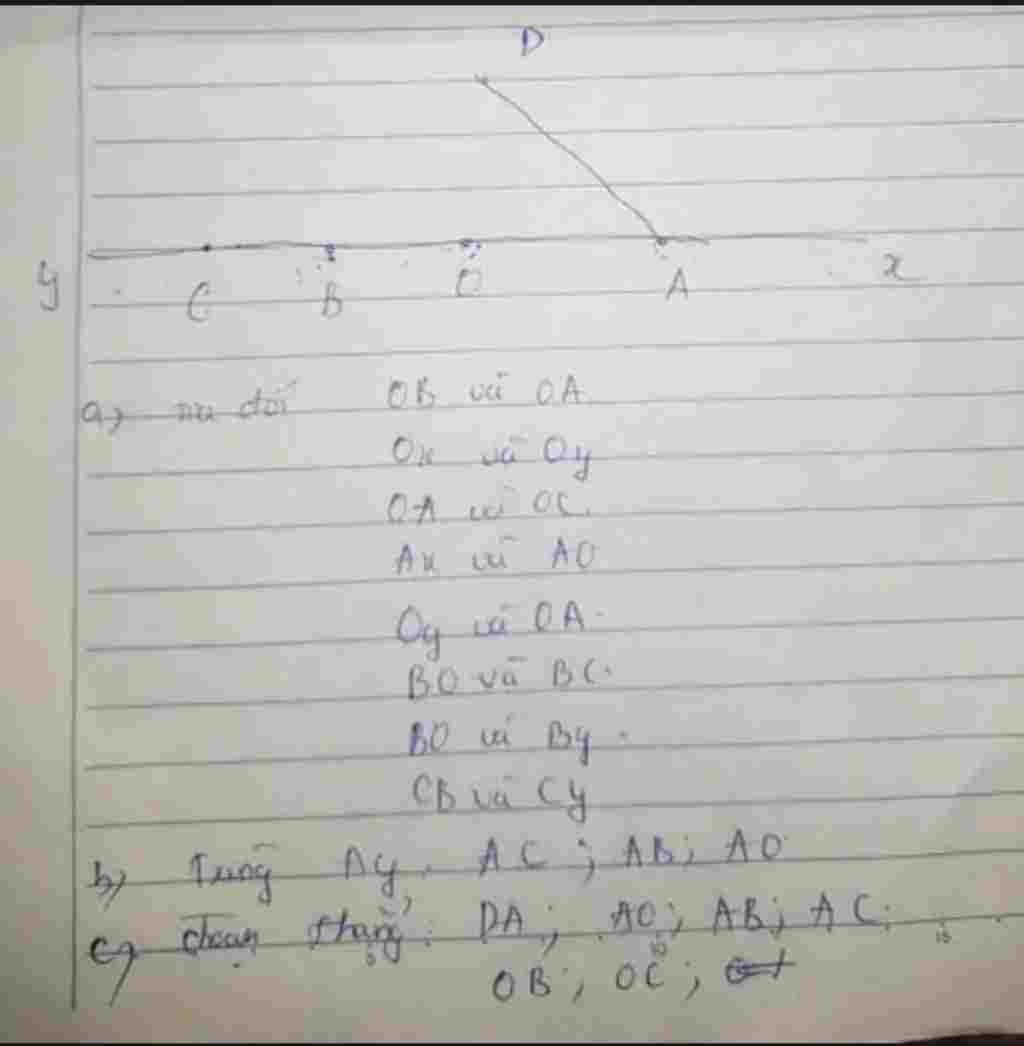 D
y C B O A x
a, tia đối OB và OA
Ox và Oy
OA và OC.
Ax và AO
Oy và OA.
BO và BC.
BO và By.
CB và Cy
b, Trùng Ay, AC; AB; AO
c, đoạn thẳng: DA; AO; AB; AC;
OB; OC;